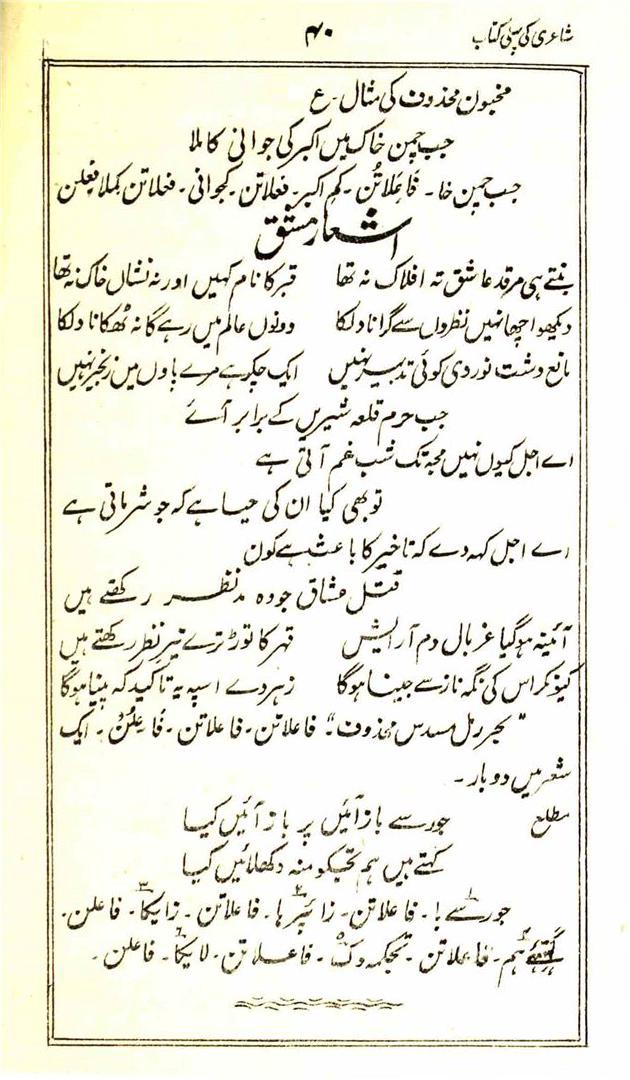 شاعری کی پہلی کتاب ۴۰
مخبون محذوف کی مثال ۔ ع
جب چمن خاک میں اکبر کی جوانی کا ملا
جب چمن خا ۔ فاعلاتن ۔ کم اکبر ۔ فعلاتن ۔ کجوانی ۔ فعلاتن کملا فعلن
اشعار مشق
بنتے ہی مرقد عاشق تہ افلاک نہ تھا قبر کا نام کہیں اور نہ نشاں خاک نہ تھا
دیکھو اچھا نہیں نظروں سے گرانا دل کا دونوں عالم میں رہے گا نہ ٹھکانا دل کا
مانع دشت نوردی کوئی تدبیر نہیں ایک چکر ہے مرے پاوں میں زنجیر نہیں
جب حرم قلعہ شیریں کے برابر آئے
اے اجل کیوں نہیں مجھ تک شب غم آتی ہے
تو بھی کیا ان کی حیا ہے کہ جو شرماتی ہے
اے اجل کہہ دے کہ تاخیر کا باعث ہے کون
قتل عشاق جو وہ مد نظر رکھتے ہیں
آئینہ ہوگیا غربال دم آرایش قہر کا توڑ ترے تیر نظر رکھتے ہیں
کیونکر اس کی نگہ ناز سے جینا ہوگا زہر دے اسپہ یہ تاکید کہ پینا ہوگا
"بحر رمل مسدس محذوف" فاعلاتن ۔ فاعلاتن ۔ فاعلن ۔ ایک
شعر میں دو بار ۔
مطلع جور سے باز آئیں پر باز آئیں کیا
کہتے ہیں ہم تجکو منہ دکھلائیں کیا
جور سے با ۔ فاعلاتن ۔ زا ۔ فاعلاتن ۔ زایکا ۔ فاعلن ۔
کہتے ہم ۔ فاعلاتن ۔ تجکمہ دک ۔ فاعلاتن ۔ لایکا ۔ فاعلن ۔